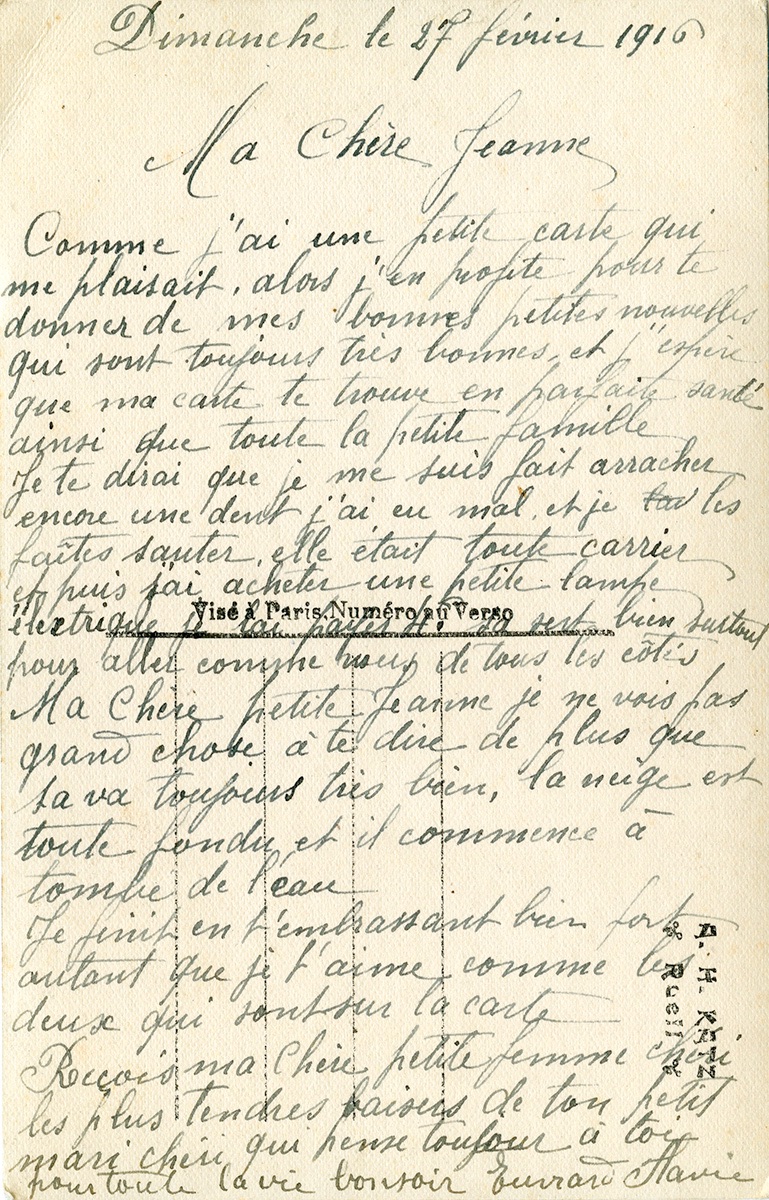 Dimanche le 27 février 1916
Ma Chère Jeanne
Comme j'ai une petite carte qui
me plaisait, alors j'en profite pour te
donner de mes bonnes petites nouvelles
qui sont toujours très bonnes, et j'espère
que ma carte te trouve en parfaite santé
ainsi que toute la petite famille
Je te dirai que je me suis fait arracher
encore une dent j'ai eu mal, et je les
faîtes sauter, elle était toute carrier
et puis j'ai acheter une petite lampe
électrique je payes sert bien surtout
Visé à Paris. Numéro au Verso
pour aller comme nous de tous les côtés
Ma Chère petite Jeanne je ne vois pas
grand chose à te dire de plus que
sa va toujours très bien, la neige est
toute fondu et il commence à
tombé de l'eau
Je finit en t'embrassant bien fort
autant que je t'aime comme les
deux qui sont sur la carte
Reçois ma Chère petite femme chéri
les plus tendres baisers de ton petit
mari chéri qui pense toujour à toi
pour toute la vie bonsoir Euvrard Flavie
A. H. KATZ
Rueil